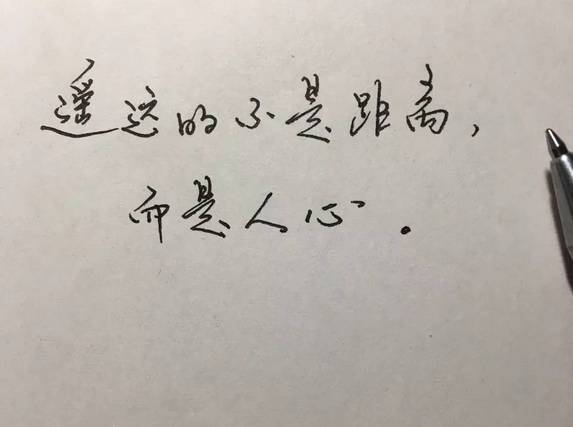 遥远的不是距离，
而是人心.